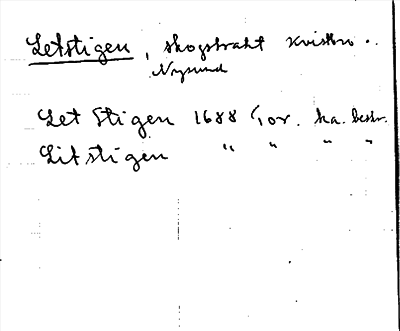 Letstigen, skogstrakt Kvistbro..
Nysund
Let Stigen 1688 Gor. ka. beskr.
Lit stigen " " " "